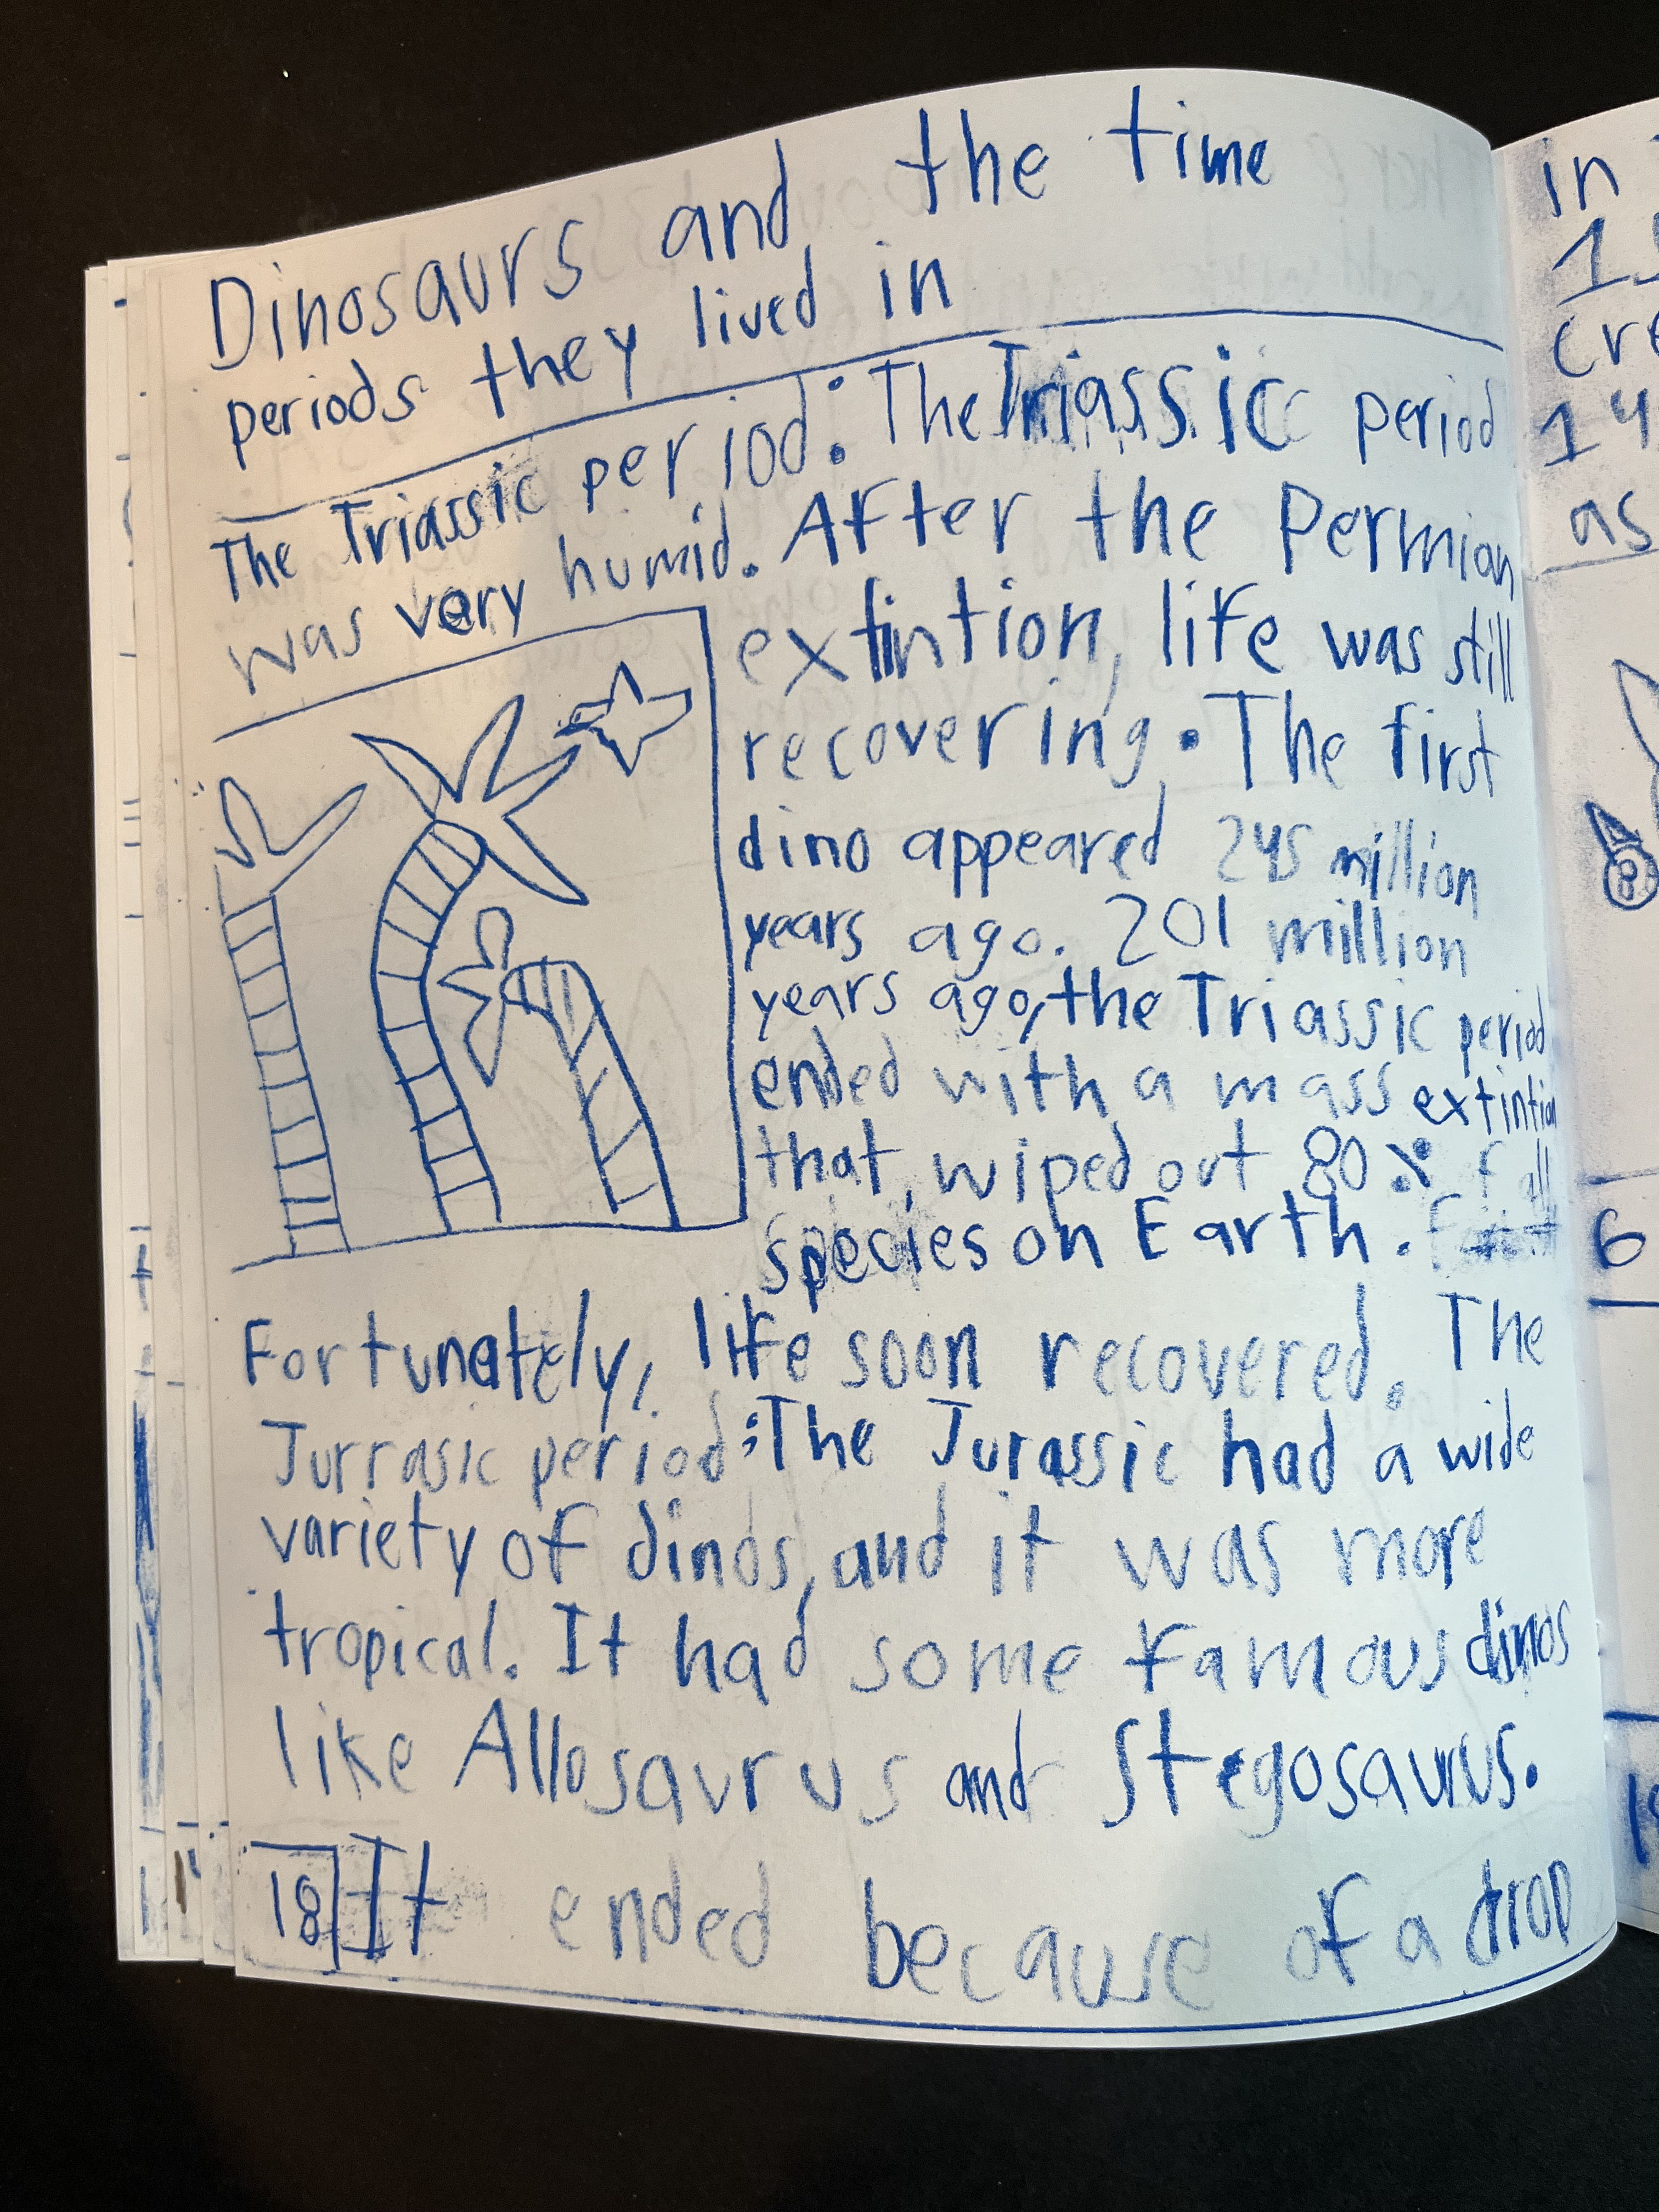 Dinosaurs and the time
periods they lived in
The Triassic period: The Triassic period
was very humid. After the Permian
extintion, life was still
recovering. The first
dino appeared 245 million
years ago. 201 million
years ago, the Triassic period
ended with a mass extintion
that wiped out 80% of all
species on Earth.
Fortunately, life soon recovered. The
Jurrasic period: The Jurassic had a wide
variety of dinos, and it was more
tropical. It had some famous dinos
like Allosaurus and Stegosaurus.
18 It ended because of a drop
in
as
6